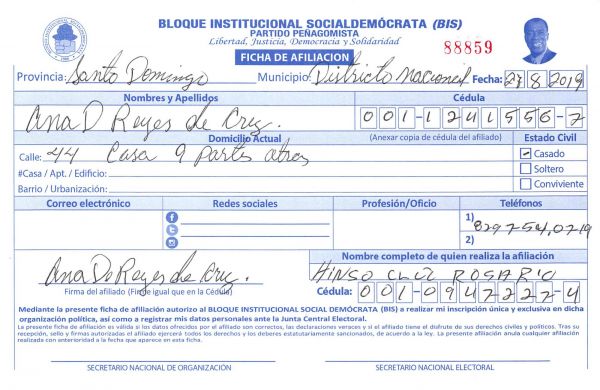 BLOQUE INSTITUCIONAL SOCIALDEMÓCRATA (BIS)
PARTIDO PEÑAGOMISTA
Libertad, Justicia, Democracia y Solidaridad
FICHA DE AFILIACION
88859
Provincia: Santo Domingo Municipio: Districto Nacional Fecha: 27/8/2019
Nombres y Apellidos Cédula
Ana D Reyes de Cruz. 001-1241556-7
Domicilio Actual (Anexar copia de cédula del afiliado) Estado Civil
Calle: 44 Casa 9 partes atras Casado
#Casa / Apt. / Edificio: Soltero
Barrio / Urbanización: Conviviente
Correo electrónico Redes sociales Profesión/Oficio Teléfonos
1) 829 754,0719
2)
Nombre completo de quien realiza la afiliación
Ana D Reyes de Cruz. HINSO CRUZ ROSARIO
Firma del afiliado (Firme igual que en la Cédula) Cédula: 001-0947227-4
Mediante la presente ficha de afiliación autorizo al BLOQUE INSTITUCIONAL SOCIAL DEMÓCRATA (BIS) a realizar mi inscripción única y exclusiva en dicha
organización política, así como a registrar mis datos personales ante la Junta Central Electoral.
La presente ficha de afiliación es válida si los datos ofrecidos por el afiliado son correctos, las declaraciones veraces y si el afiliado tiene el disfrute de sus derechos civiles y políticos. Tras su
recepción, sello y firmas autorizadas el afiliado ejercerá todos los derechos y los deberes estatutariamente sancionados, de acuerdo a la ley. La presente afiliación anula cualquier afiliación
realizada con anterioridad a la fecha que aparece en esta ficha.
SECRETARIO NACIONAL DE ORGANIZACIÓN SECRETARIO NACIONAL ELECTORAL